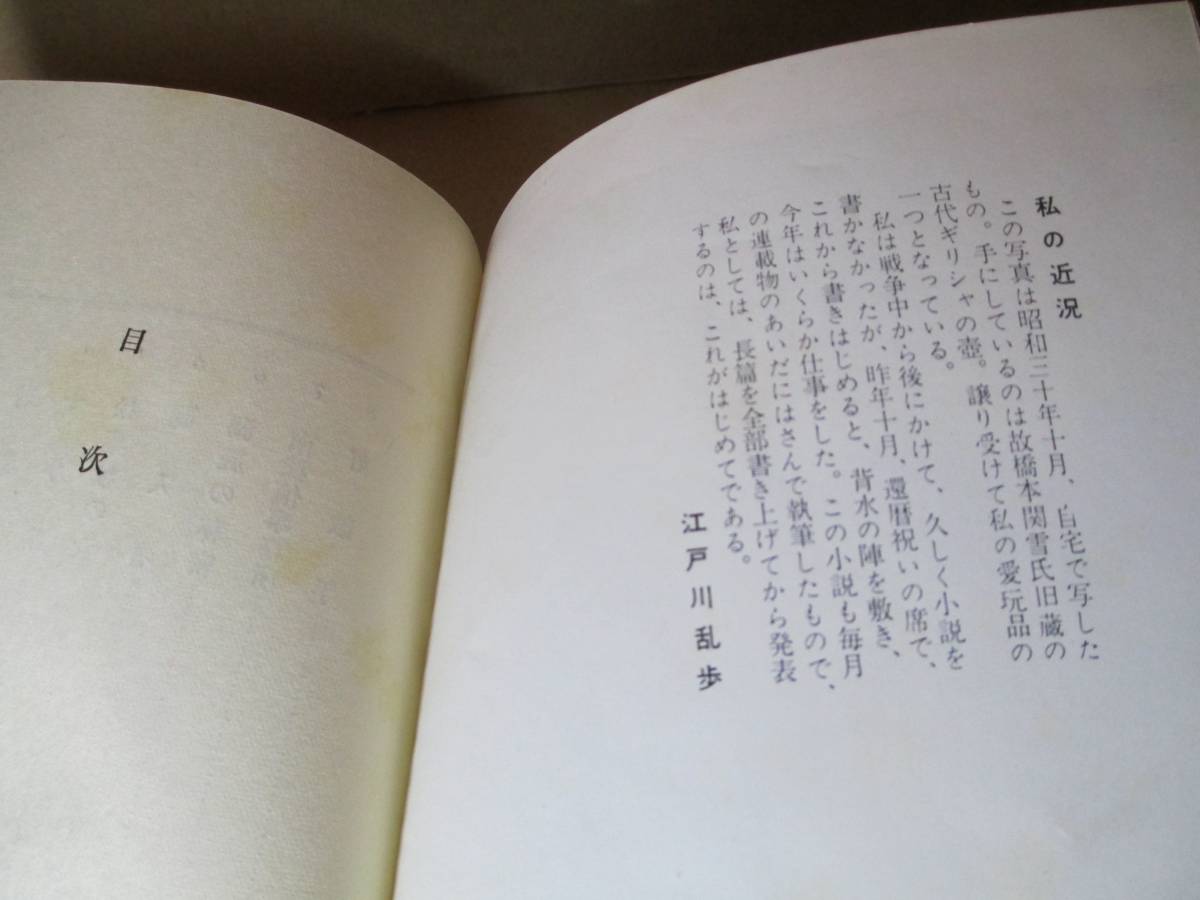 私の近況
この写真は昭和三十年十月、自宅で写した
もの。手にしているのは故橋本関雪氏旧蔵の
古代ギリシャの壺。譲り受けて私の愛玩品の
一つとなっている。
私は戦争中から後にかけて、久しく小説を
書かなかったが、昨年十月、還暦祝いの席で、
これから書きはじめると、背水の陣を敷き、
今年はいくらか仕事をした。この小説も毎月
の連載物のあいだにはさんで執筆したもので、
私としては、長篇を全部書き上げてから発表
するのは、これがはじめてである。
江戸川乱歩
目次